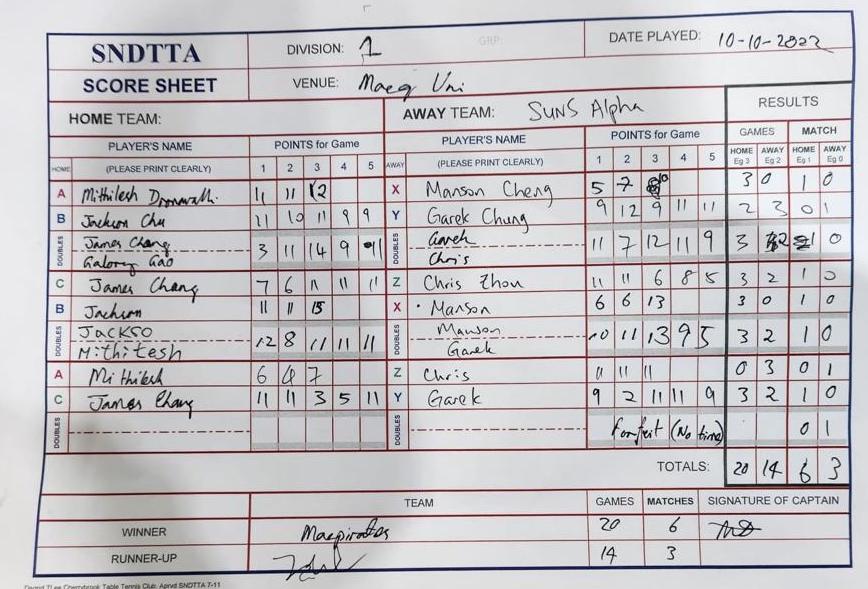 SNDTTA
SCORE SHEET
DIVISION: 1
GRP:
DATE PLAYED: 10-10-2022
VENUE: Macq Uni
HOME TEAM:
AWAY TEAM: SUNS Alpha
RESULTS
PLAYER'S NAME POINTS for Game PLAYER'S NAME POINTS for Game GAMES MATCH
HOME (PLEASE PRINT CLEARLY) 1 2 3 4 5 AWAY (PLEASE PRINT CLEARLY) 1 2 3 4 5 HOME Eg 3 AWAY Eg 2 HOME Eg 1 AWAY Eg 0
A Mithilesh 11 11 12 X Manson Cheng 5 7 10 3 0 1 0
B Jackson Chu 11 10 11 9 9 Y Garek Chung 9 12 9 11 11 2 3 0 1
DOUBLES James Chang 3 11 14 9 11 DOUBLES Garek 11 7 12 11 9 3 2 1 0
Galong Gao Chris
C James Chang 7 6 11 11 11 Z Chris Zhou 11 11 6 8 5 3 2 1 0
B Jackson 11 11 15 X Manson 6 6 13 3 0 1 0
DOUBLES JACKSO 12 8 11 11 11 DOUBLES Manson 10 11 13 9 5 3 2 1 0
Mithitesh Garek
A Mithilesh 6 4 7 Z Chris 11 11 11 0 3 0 1
C James Chang 11 11 3 5 11 Y Garek 9 2 11 11 9 3 2 1 0
DOUBLES DOUBLES Forfeit (No time) 0 1
TOTALS: 20 14 6 3
TEAM GAMES MATCHES SIGNATURE OF CAPTAIN
WINNER Macpirates 20 6
RUNNER-UP 14 3
Cherrybrook Table Tennis Club, Aprvd SNDTTA 7-11